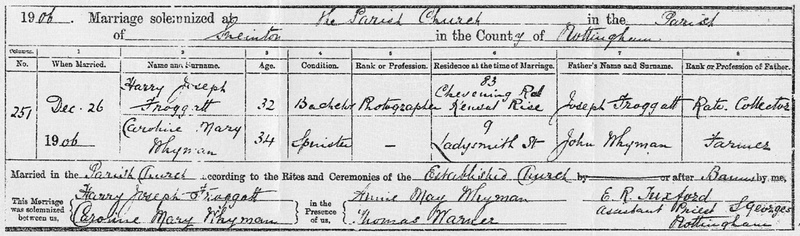 1906. Marriage solemnized at The Parish Church in the Parish
of Sneinton in the County of Nottingham.
Columns. 1 2 3 4 5 6 7 8
No. When Married. Name and Surname. Age. Condition. Rank or Profession. Residence at the time of Marriage. Father's Name and Surname. Rank or Profession of Father.
251 Dec. 26 1906
Harry Joseph Froggatt 32 Bachelor Photographer 83 Chevening Rd Kensal Rise Joseph Froggatt Rate Collector
Caroline Mary Whyman 34 Spinster — 9 Ladysmith St John Whyman Farmer
Married in the Parish Church according to the Rites and Ceremonies of the Established Church by — or after Banns by me,
This Marriage was solemnized between us,
Harry Joseph Froggatt
Caroline Mary Whyman
in the Presence of us,
Annie May Whyman
Thomas Warner
E. R. Truxford
Assistant Priest S Georges
Nottingham